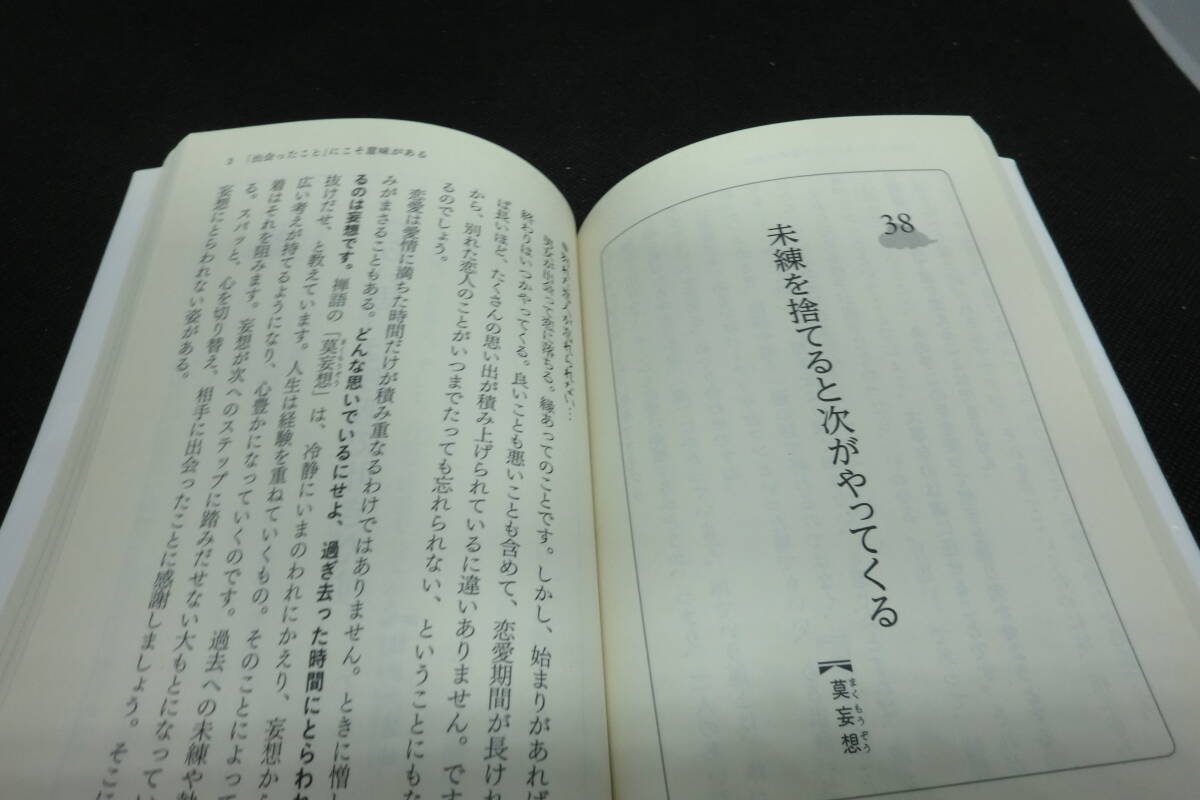 38
未練を捨てると次がやってくる
【莫妄想
まくもうぞう
3 「出会ったこと」にこそ意味がある
縁あってのことです。しかし、始まりがあれば
終わりはいつかやってくる。良いことも悪いことも含めて、恋愛期間が長けれ
ば長いほど、たくさんの思い出が積み上げられているに違いありません。です
から、別れた恋人のことがいつまでたっても忘れられない、ということにもな
るのでしょう。
恋愛は愛情に満ちた時間だけが積み重なるわけではありません。ときに憎し
みがまさることもある。どんな思いでいるにせよ、過ぎ去った時間にとらわれ
るのは妄想です。禅語の「莫妄想」は、冷静にいまのわれにかえり、妄想から
まくもうぞう
抜けだせ、と教えています。人生は経験を重ねていくもの。そのことによって
広い考えが持てるようになり、心豊かになっていくのです。過去への未練や執
着はそれを阻みます。妄想が次へのステップに踏みだせない大もとになってい
る。スパッと、心を切り替え、相手に出会ったことに感謝しましょう。そこに
妄想にとらわれない姿がある。